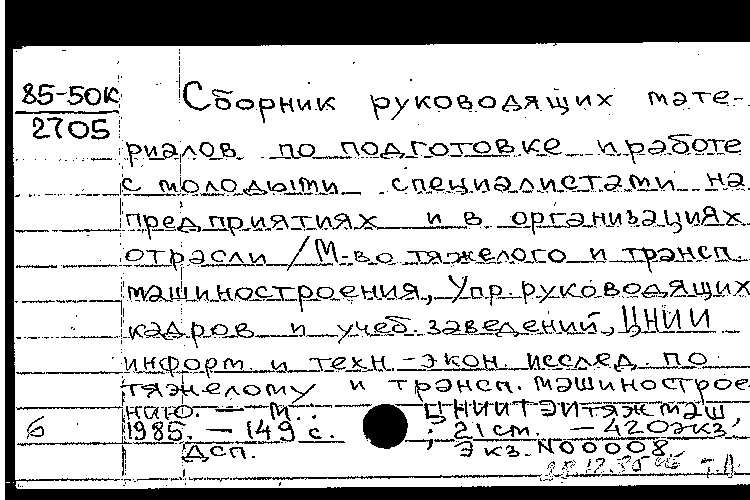 85-50к
2705
Сборник руководящих мате-
риалов по подготовке и работе
с молодыми специалистами на
предприятиях и в организациях
отрасли /М-во тяжелого и трансп.
машиностроения, Упр. руководящих
кадров и учеб. заведений, ЦНИИ
информ. и техн.-экон. исслед. по
тяжелому и трансп. машинострое-
нию. — М.: ЦНИИТЭИтяжмаш,
б 1985. — 149 с. ; 21 см. — 420 экз,
Дсп. Экз. N00008